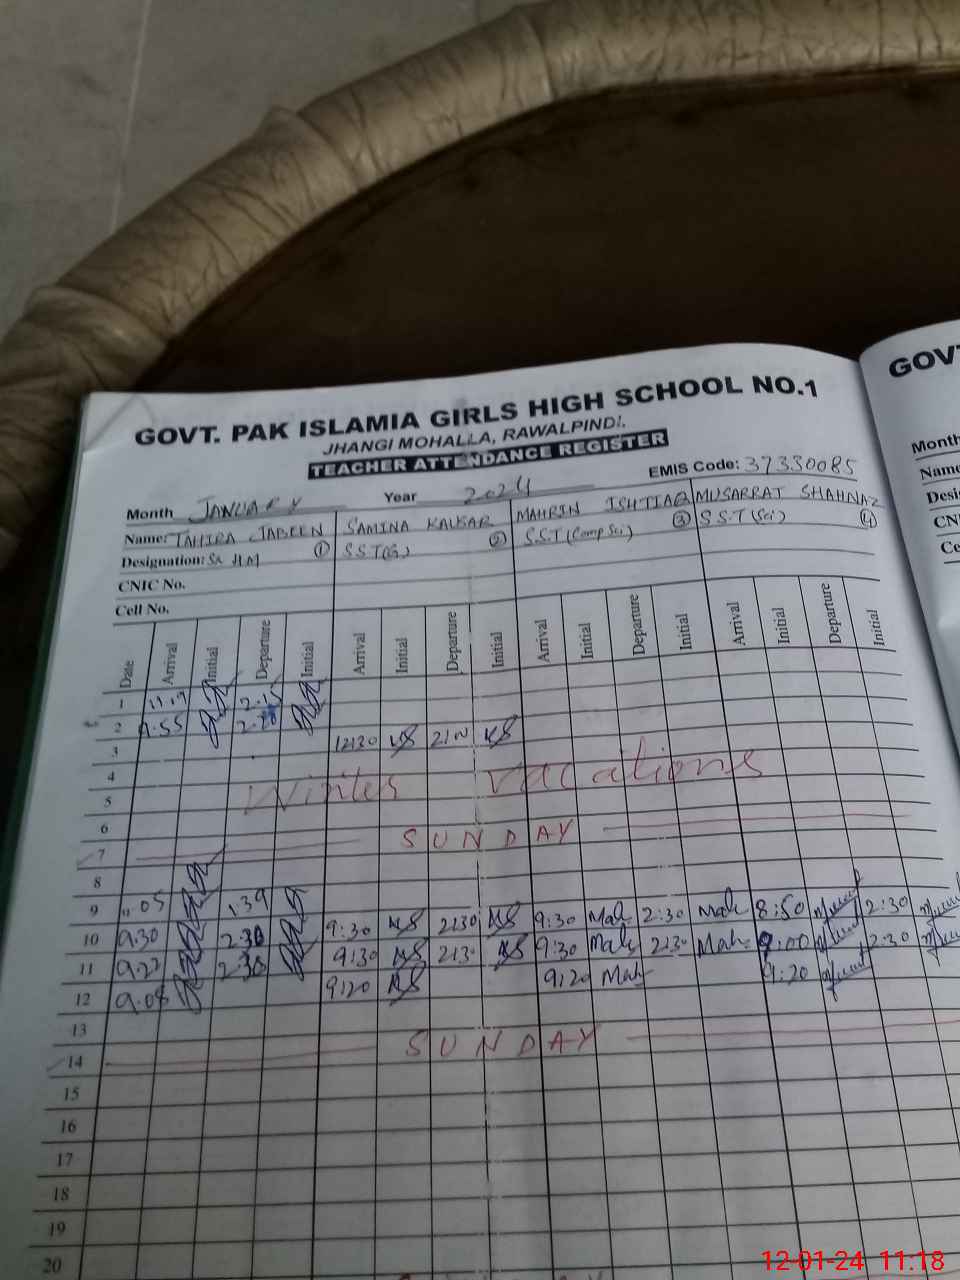 GOVT. PAK ISLAMIA GIRLS HIGH SCHOOL NO.1
JHANGI MOHALLA, RAWALPINDI.
TEACHER ATTENDANCE REGISTER
EMIS Code: 37330085
Month JANUARY Year 2024
Name: TAHIRA JABEEN ① SAMINA KAUSAR ② MAHRIN ISHTIAQ ③ MUSARRAT SHAHNAZ ④
Designation: HM SST(G) S.S.T (Comp Sci) S.S.T (Sci)
CNIC No.
Cell No.
Date Arrival Initial Departure Initial Arrival Initial Departure Initial Arrival Initial Departure Initial Arrival Initial Departure Initial
1
2 9.55
3 12130
4 Winter Vacations
5
6
7 SUNDAY
8
9 9:30 2130 9:30 Mah 2:30 Mah 8:50 2:30
10 9.30 2.30 9:30 2130 9:30 Mah 2130 Mah 9:00 2:30
11 9.22 2.30 9120 9120 Mah 9:20
12 9.08
13
14 SUNDAY
15
16
17
18
19
20
GOVT
Month
Name
Desi
CN
Ce
12-01-24 11:18